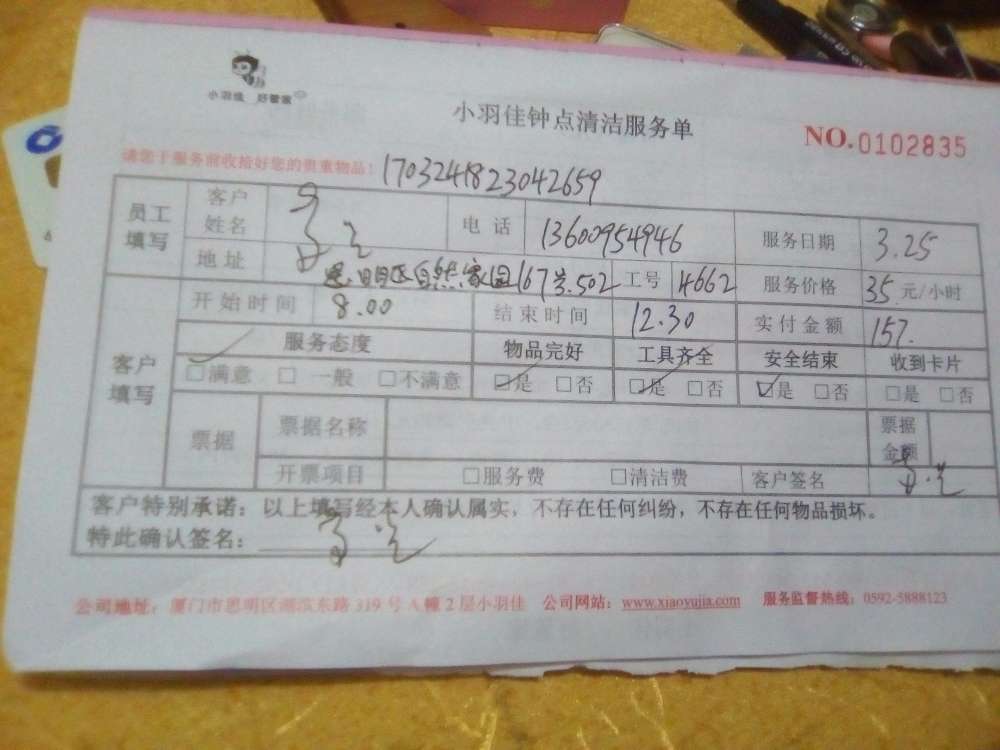 小羽佳 好管家
小羽佳钟点清洁服务单
NO.0102835
请您于服务前收拾好您的贵重物品:
1703241823042659
员工填写 客户姓名 电话 13600954946 服务日期 3.25
地址 思明区自然家园167号.502 工号 4662 服务价格 35 元/小时
客户填写 开始时间 8.00 结束时间 12.30 实付金额 157.
服务态度 物品完好 工具齐全 安全结束 收到卡片
□满意 □一般 □不满意 □是 □否 □是 □否 □是 □否 □是 □否
票据 票据名称 票据金额
开票项目 □服务费 □清洁费 客户签名
客户特别承诺:以上填写经本人确认属实,不存在任何纠纷,不存在任何物品损坏。
特此确认签名:
公司地址:厦门市思明区湖滨东路319号A幢2层小羽佳 公司网站:www.xiaoyujia.com 服务监督热线:0592-5888123